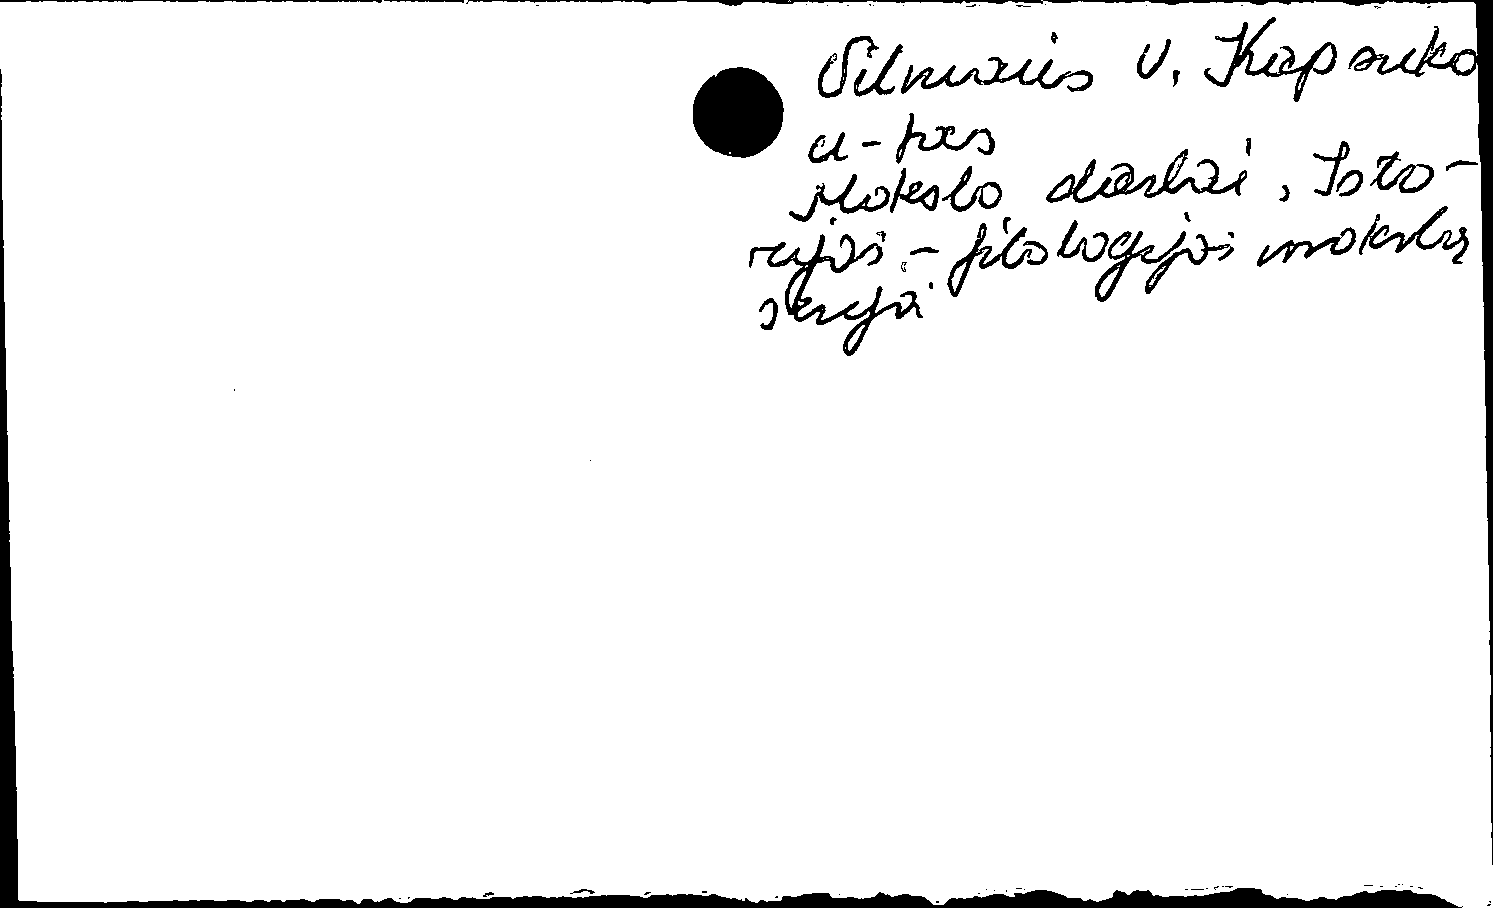 Vilniaus V. Kapsuko
u-tas
Mokslo darbai, Isto-
rijos - filologijos mokslų
serija